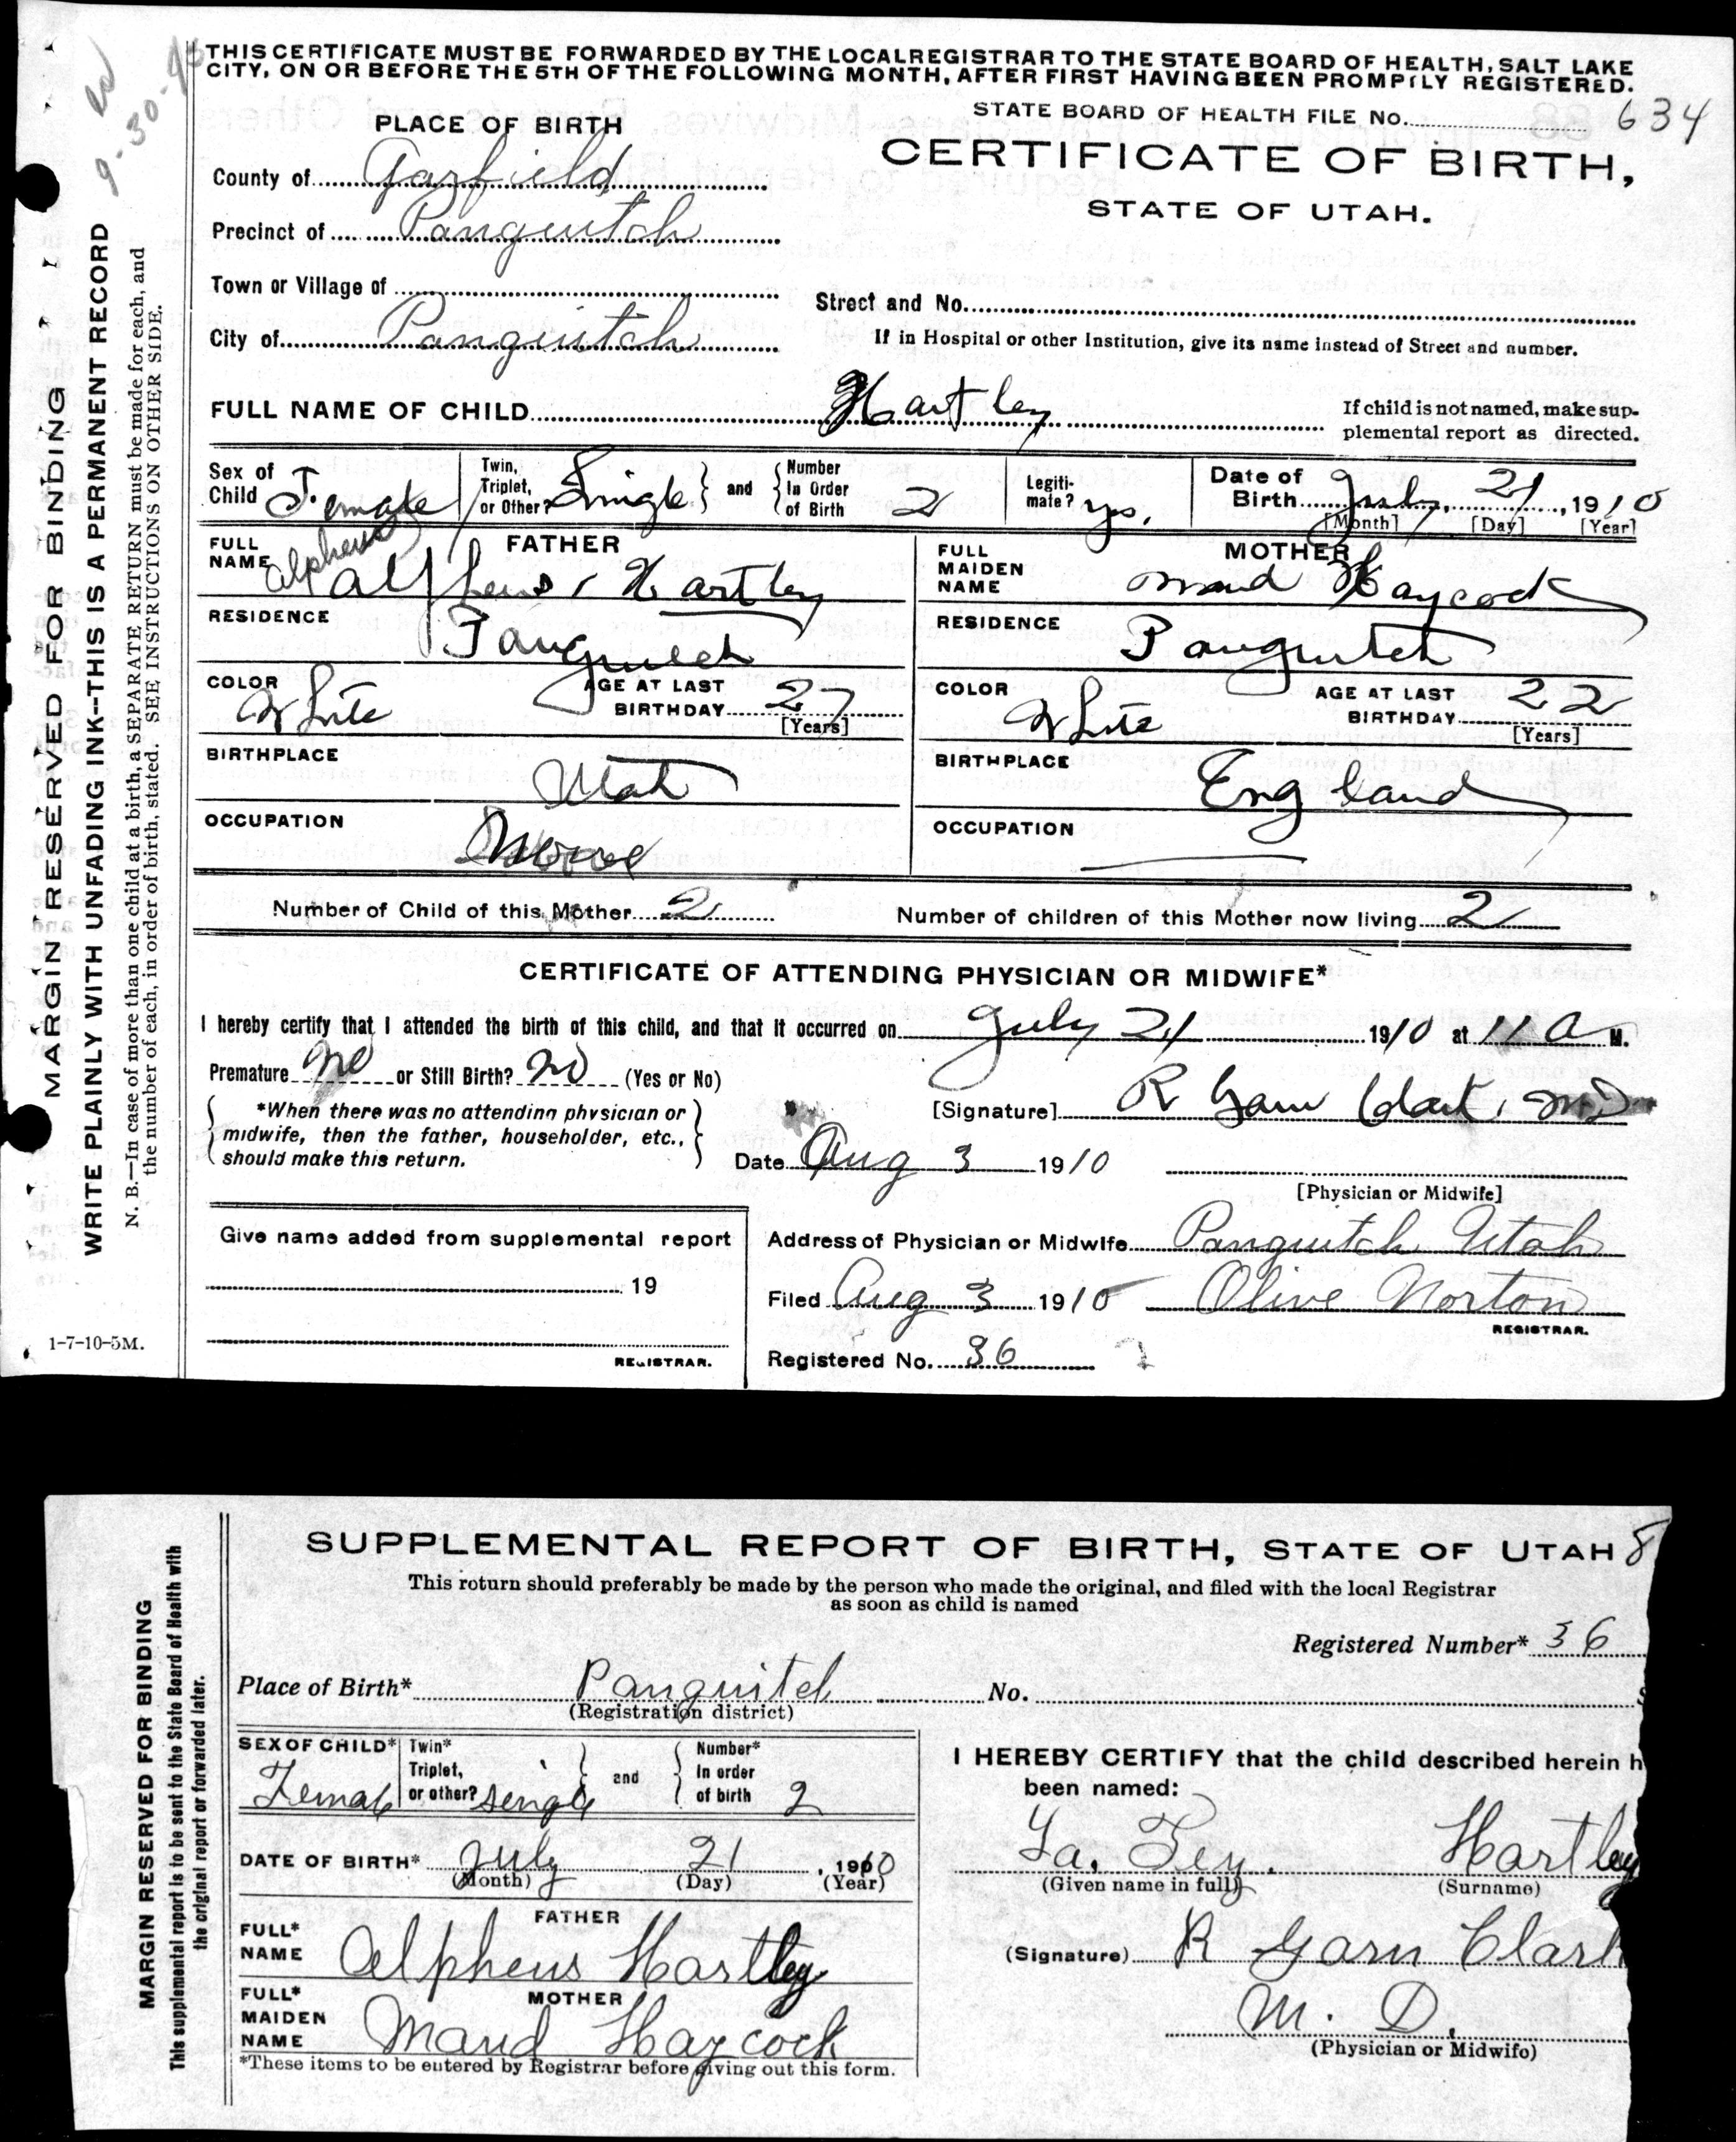 THIS CERTIFICATE MUST BE FORWARDED BY THE LOCAL REGISTRAR TO THE STATE BOARD OF HEALTH, SALT LAKE
CITY, ON OR BEFORE THE 5TH OF THE FOLLOWING MONTH, AFTER FIRST HAVING BEEN PROMPTLY REGISTERED.
9-30-
STATE BOARD OF HEALTH FILE No. 634
PLACE OF BIRTH
CERTIFICATE OF BIRTH,
STATE OF UTAH.
County of Garfield
Precinct of Panguitch
Town or Village of
Street and No.
City of Panguitch
If in Hospital or other Institution, give its name instead of Street and number.
FULL NAME OF CHILD Hartley
If child is not named, make sup-
plemental report as directed.
Sex of Child Female
Twin, Triplet, or Other? Single and Number In Order of Birth 2
Legiti-mate? yes.
Date of Birth July 21, 1910
[Month] [Day] [Year]
FATHER
MOTHER
FULL NAME Alpheus Alpheus Hartley
FULL MAIDEN NAME Maud Haycock
RESIDENCE Panguitch
RESIDENCE Panguitch
COLOR White AGE AT LAST BIRTHDAY 27 [Years]
COLOR White AGE AT LAST BIRTHDAY 22 [Years]
BIRTHPLACE Utah
BIRTHPLACE England
OCCUPATION
OCCUPATION
Number of Child of this Mother 2
Number of children of this Mother now living 2
CERTIFICATE OF ATTENDING PHYSICIAN OR MIDWIFE*
I hereby certify that I attended the birth of this child, and that it occurred on July 21 1910 at 11 a M.
Premature no or Still Birth? no (Yes or No)
*When there was no attending physician or
midwife, then the father, householder, etc.,
should make this return.
[Signature] R Garn Clark, MD
Date Aug 3 1910
[Physician or Midwife]
Give name added from supplemental report
19
REGISTRAR.
Address of Physician or Midwife Panguitch Utah
Filed Aug 3 1910 Olive Norton
REGISTRAR.
Registered No. 36
MARGIN RESERVED FOR BINDING
WRITE PLAINLY WITH UNFADING INK--THIS IS A PERMANENT RECORD
N. B.—In case of more than one child at a birth, a SEPARATE RETURN must be made for each, and
the number of each, in order of birth, stated. SEE INSTRUCTIONS ON OTHER SIDE.
1-7-10-5M.
SUPPLEMENTAL REPORT OF BIRTH, STATE OF UTAH 8
This return should preferably be made by the person who made the original, and filed with the local Registrar
as soon as child is named
Registered Number* 36
Place of Birth* Panguitch No.
(Registration district)
SEX OF CHILD* Female
Twin* Triplet, or other? single and Number* In order of birth 2
DATE OF BIRTH* July 21, 1910
(Month) (Day) (Year)
FATHER
FULL* NAME Alpheus Hartley
MOTHER
FULL* MAIDEN NAME Maud Haycock
*These items to be entered by Registrar before giving out this form.
I HEREBY CERTIFY that the child described herein h
been named:
La. Fey. Hartley
(Given name in full) (Surname)
(Signature) R Garn Clark
M. D.
(Physician or Midwife)
MARGIN RESERVED FOR BINDING
This supplemental report is to be sent to the State Board of Health with
the original report or forwarded later.